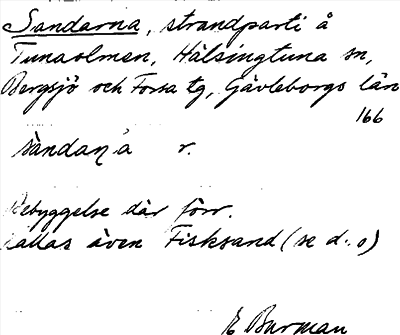 Sandarna, strandparti å
Tunaolmen, Hälsingtuna sn,
Bergsjö och Forsa tg, Gävleborgs län
166
sàndaɳ'a r.
Bebyggelse där förr.
Kallas även Fisksand (se d. o)
E Burman